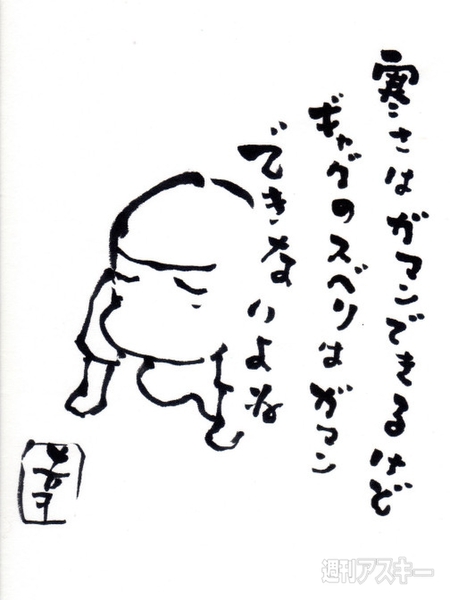 寒さはガマンできるけど
ギャグのスベリはガマン
できないよね
週刊アスキー